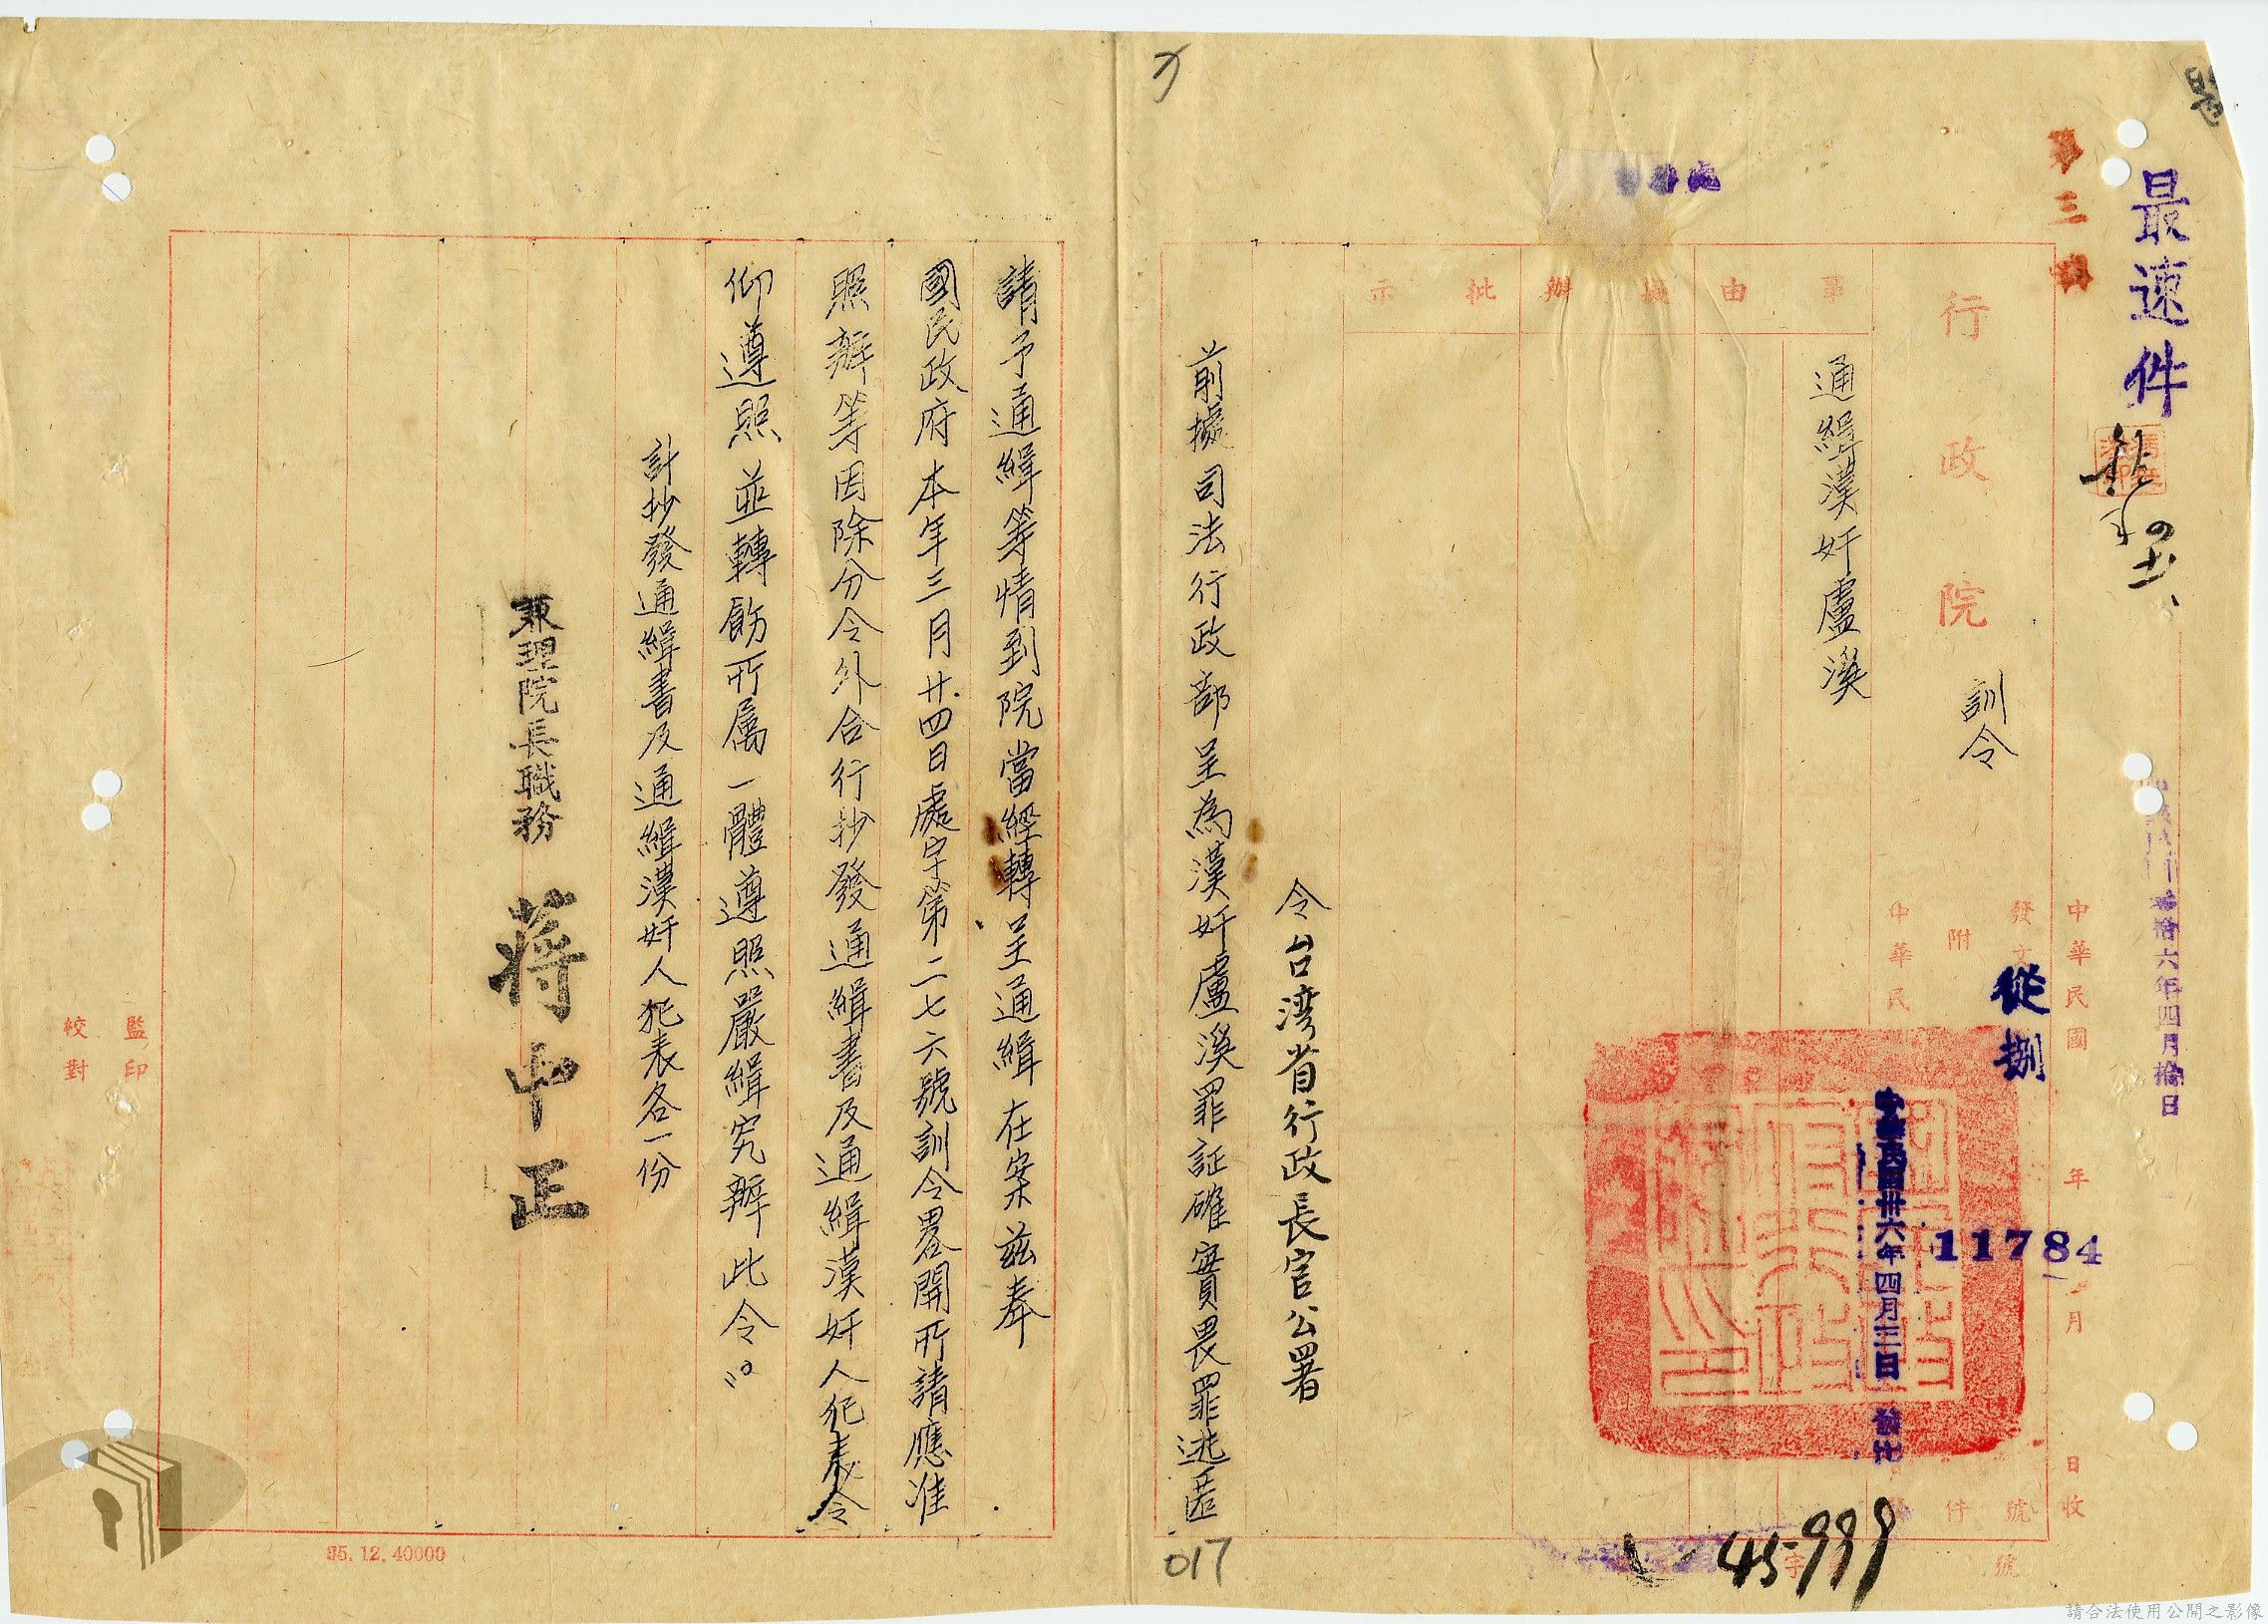 最速件
第三
中華民國 年 月 日收
拾六年四月拾日
行政院
訓令
發文
從捌
11784
號
附
件
中華民
中華民國卅六年四月三日
發出
事由
通緝漢奸盧溪
擬辦
批示
字
號
45999
令台湾省行政長官公署
前據司法行政部呈為漢奸盧溪罪証確實畏罪逃匿
017
請予通緝等情到院當經轉呈通緝在案茲奉
國民政府本年三月廿四日處字第二七六號訓令畧開所請應准
照辦等因除分令外合行抄發通緝書及通緝漢奸人犯表令
仰遵照並轉飭所屬一體遵照嚴緝究辦此令。
計抄發通緝書及通緝漢奸人犯表各一份
兼理院長職務 蔣中正
監印
校對
35.12.40000
請合法使用公開之影像